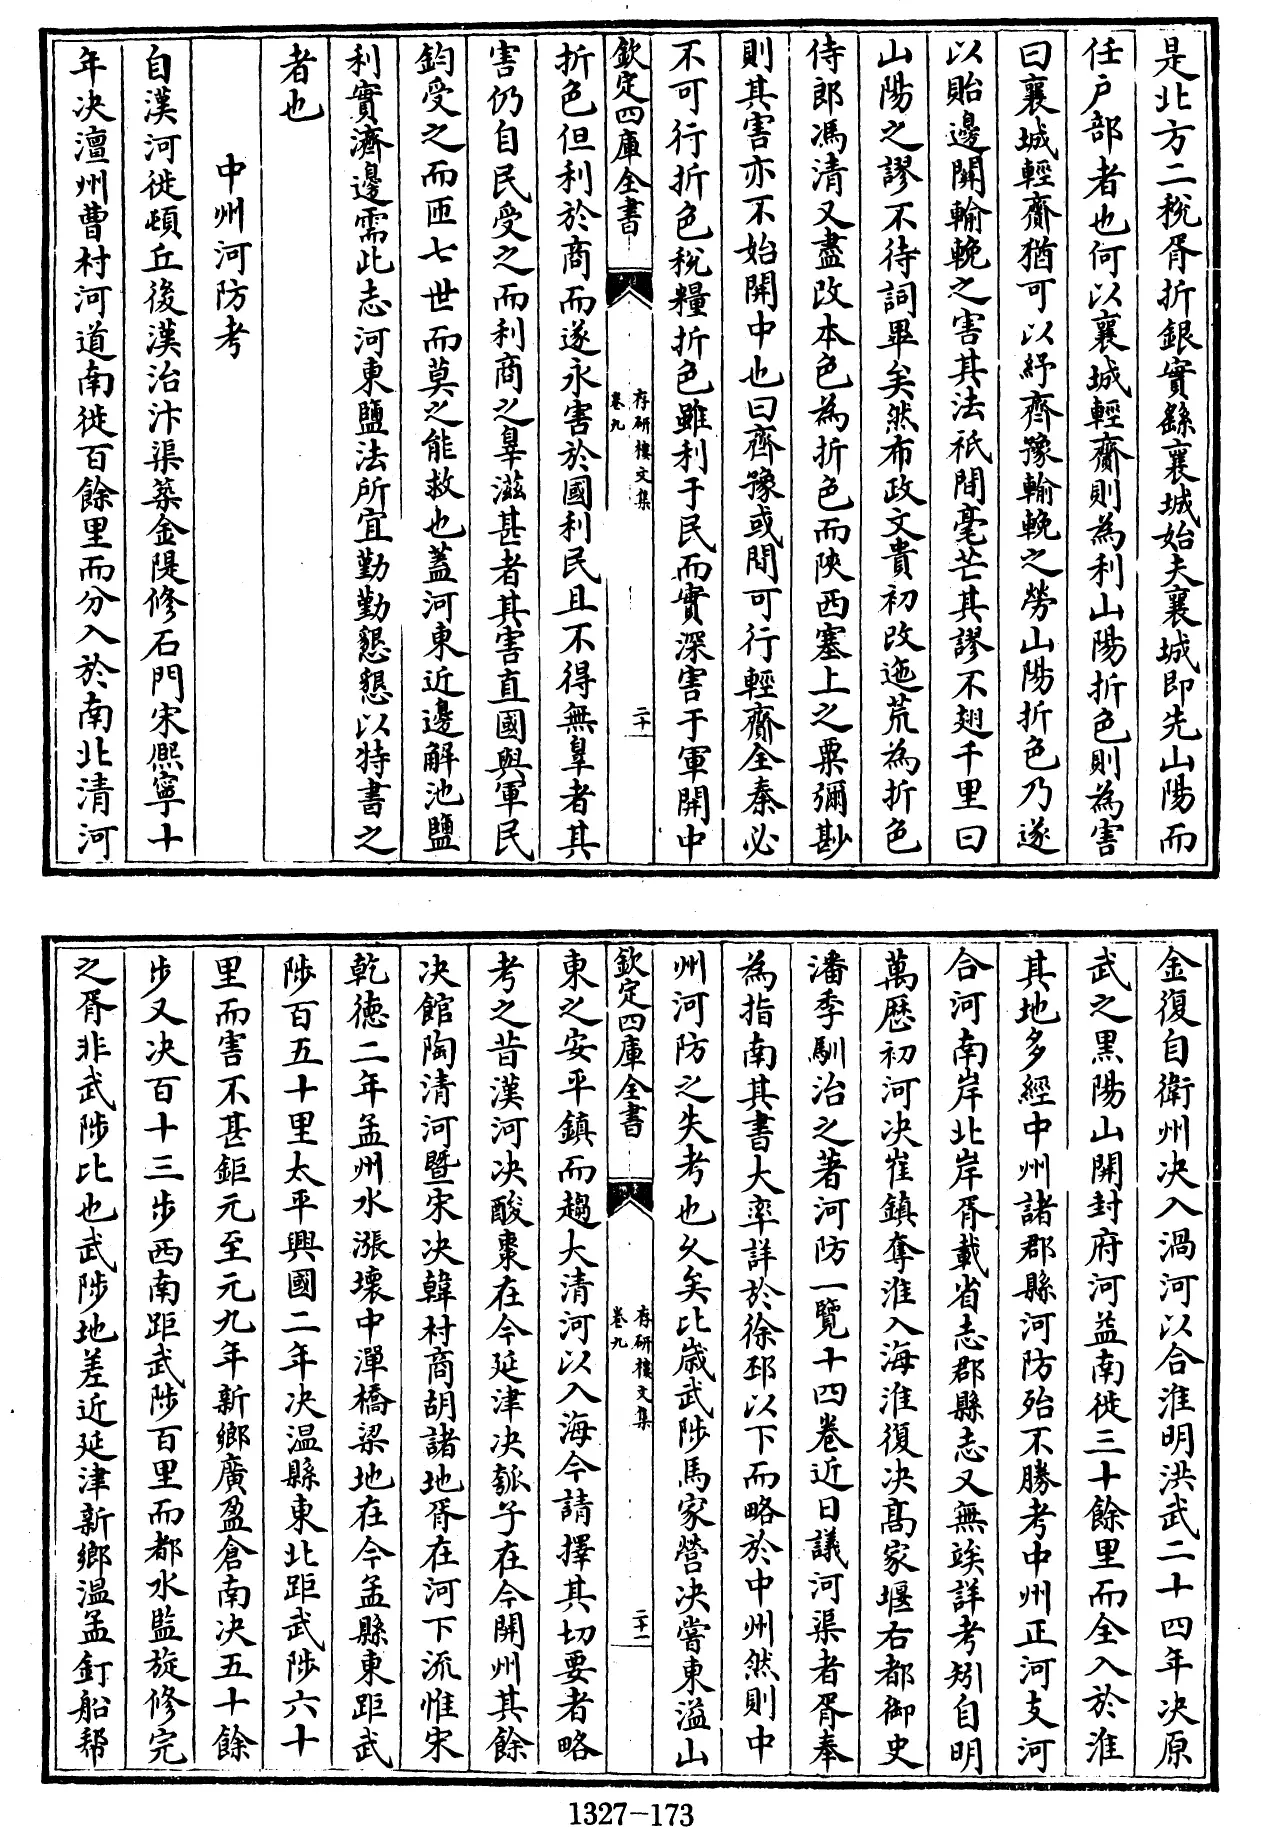 是北方二稅胥折銀實繇襄城始夫襄城即先山陽而
任户部者也何以襄城輕齎則為利山陽折色則為害
曰襄城輕齎猶可以紓齊豫輸輓之勞山陽折色乃遂
以貽邊關輸輓之害其法祇間毫芒其謬不翅千里曰
山陽之謬不待詞畢矣然布政文貴初改迤荒為折色
侍郎馮清又盡改本色為折色而陝西塞上之粟彌尠
則其害亦不始開中也曰齊豫或間可行輕齎全秦必
不可行折色稅糧折色雖利于民而實深害于軍開中
欽定四庫全書
存研樓文集
卷九
二十
折色但利於商而遂永害於國利民且不得無辠者其
害仍自民受之而利商之辠滋甚者其害直國與軍民
鈞受之而匝七世而莫之能救也蓋河東近邊解池鹽
利實濟邊需此志河東鹽法所宜勤勤懇懇以特書之
者也
中州河防考
自漢河徙頓丘後漢治汴渠築金隄修石門宋熙寧十
年决澶州曹村河道南徙百餘里而分入於南北清河
金復自衛州决入渦河以合淮明洪武二十四年决原
武之黑陽山開封府河益南徙三十餘里而全入於淮
其地多經中州諸郡縣河防殆不勝考中州正河支河
合河南岸北岸胥載省志郡縣志又無竢詳考矧自明
萬歷初河决崔鎮奪淮入海淮復决髙家堰右都御史
潘季馴治之著河防一覽十四卷近日議河渠者胥奉
為指南其書大率詳於徐邳以下而略於中州然則中
州河防之失考也久矣比歲武陟馬家營决嘗東溢山
欽定四庫全書
存研樓文集
卷九
二十一
東之安平鎮而趨大清河以入海今請擇其切要者略
考之昔漢河决酸棗在今延津决瓠子在今開州其餘
决館陶清河暨宋决韓村商胡諸地胥在河下流惟宋
乾德二年孟州水漲壞中潬橋梁地在今孟縣東距武
陟百五十里太平興國二年决温縣東北距武陟六十
里而害不甚鉅元至元九年新鄉廣盈倉南决五十餘
步又决百十三步西南距武陟百里而都水監旋修完
之胥非武陟比也武陟地差近延津新鄉温孟釘船幫
1327-173